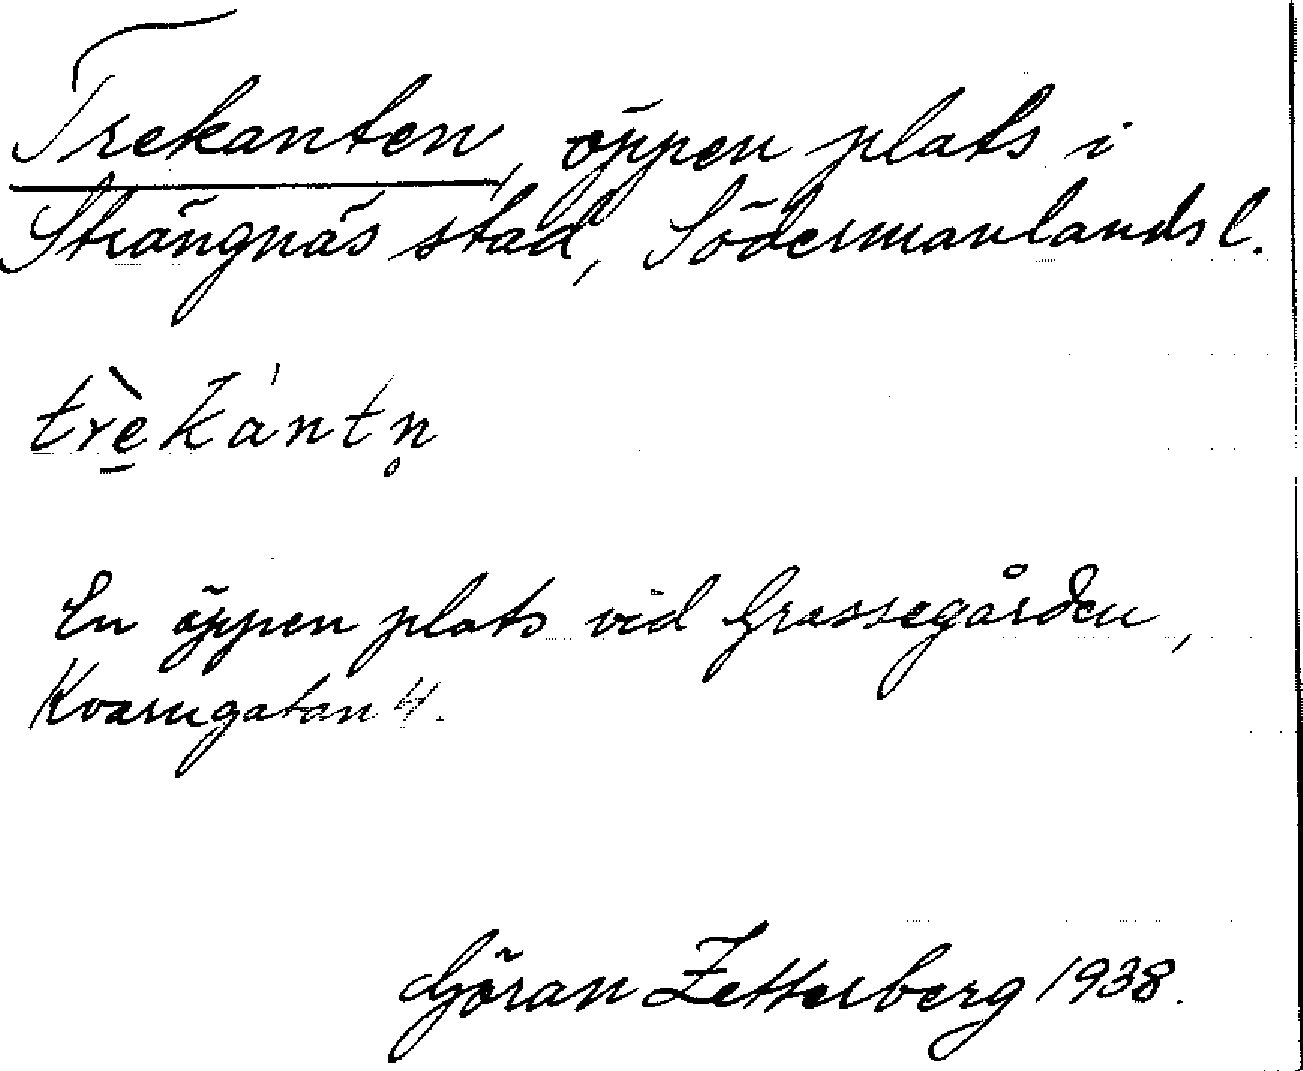 Trekanten, öppen plats i
Strängnäs stad, Södermanlands l.
trè̱kàntn̥
En öppen plats vid Grassegården,
Kvarngatan 4.
Göran Zetterberg 1938.